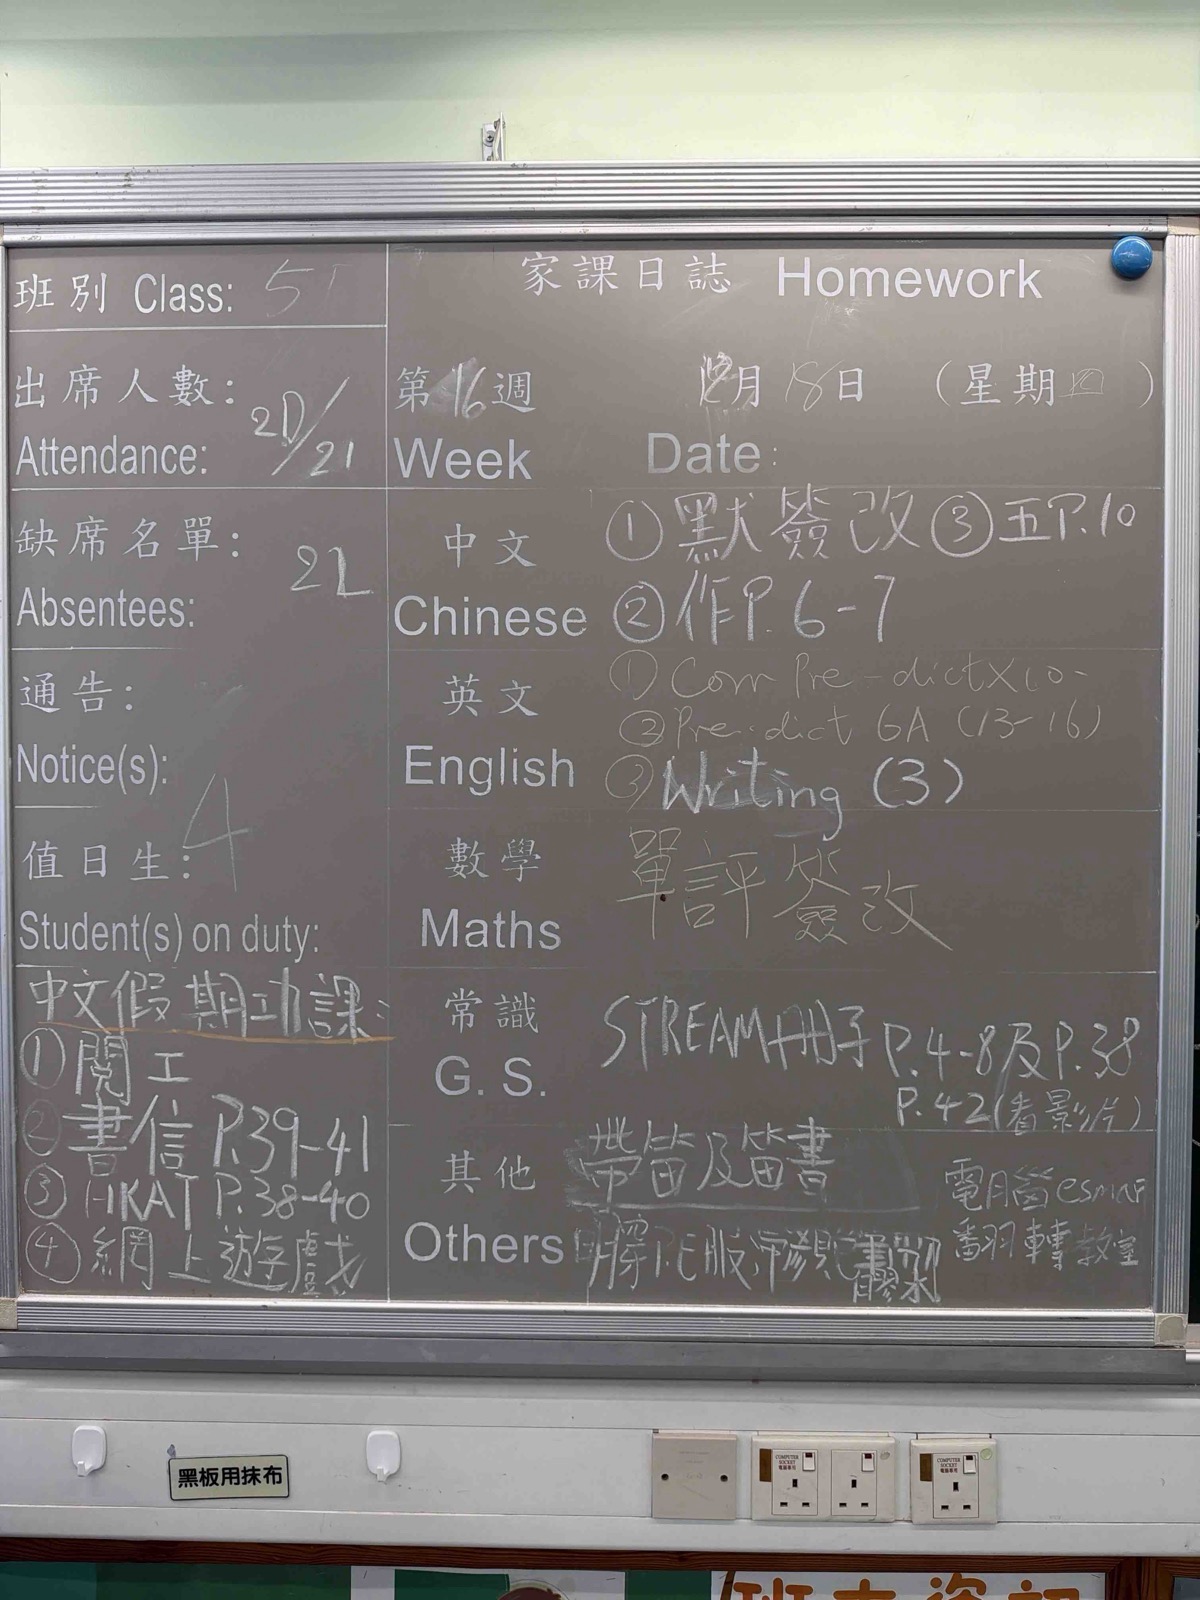 班別 Class: 5
家課日誌 Homework
出席人數:
Attendance: 20/21
第16週
Week
12月18日 (星期四)
Date:
缺席名單: 22
Absentees:
中文
Chinese
①默簽改 ③五P.10
②作P.6-7
通告:
Notice(s):
英文
English
①Corr Pre-dictX10
②Pre-dict 6A (13-16)
③Writing (3)
值日生: 4
Student(s) on duty:
數學
Maths
單評簽改
中文假期功課:
①閱工
②書信 P.39-41
③HKAT P.38-40
④網上遊戲
常識
G. S.
STREAM冊子 P.4-8及P.38
P.42(看影片)
其他
Others
帶笛及笛書
明穿P.E服
電腦esmart
翻轉教室
黑板用抹布
COMPUTER SOCKET
電腦專用
COMPUTER SOCKET
電腦專用